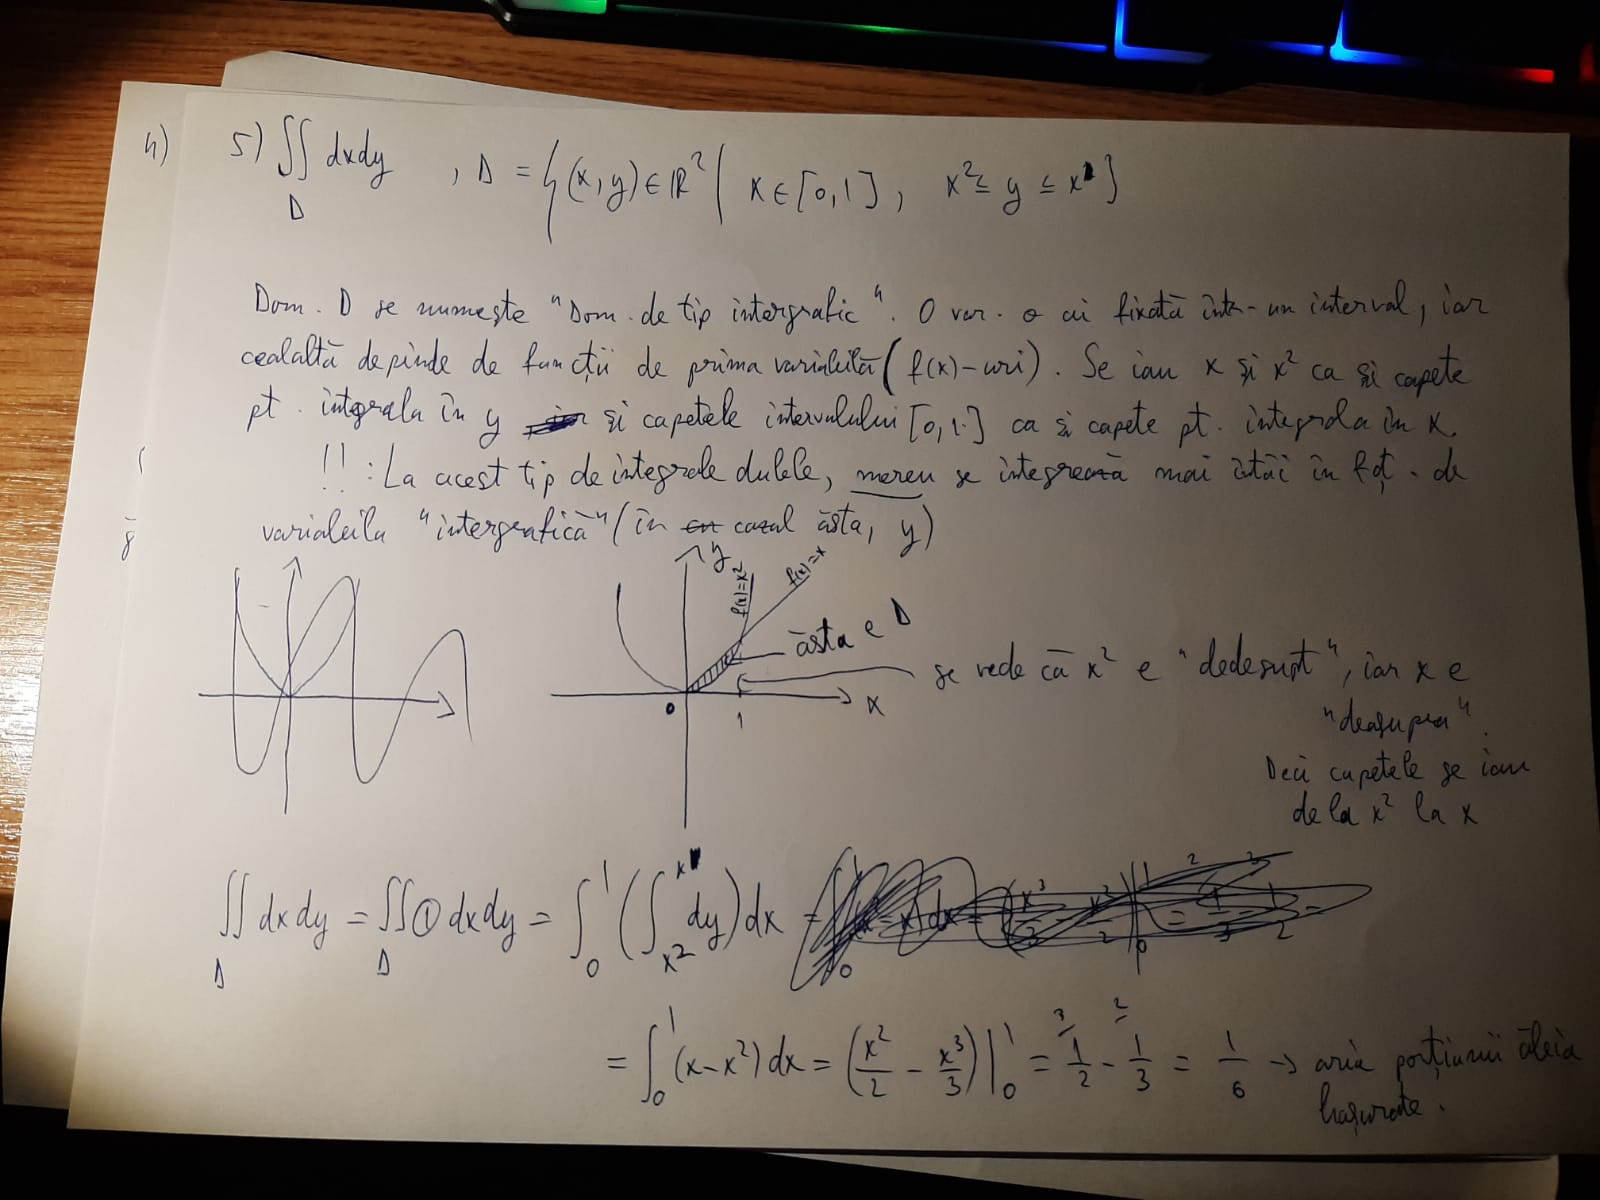 4)
5) ∬_D dxdy , D = {(x,y)∈ℝ² | x∈[0,1], x² ≤ y ≤ x}
Dom. D se numește "Dom. de tip intergrafic". O var. o ai fixată într-un interval, iar
cealaltă depinde de funcții de prima variabilă (f(x)-uri). Se iau x și x² ca și capete
pt. integrala în y și capetele intervalului [0,1] ca și capete pt. integrala în x.
!! : La acest tip de integrale duble, mereu se integrează mai întâi în fcț. de
variabila "intergrafică" (în cazul ăsta, y)
y
f(x)=x²
f(x)=x
ăsta e D
0
1
x
se vede că x² e "dedesupt", iar x e
"deasupra".
Deci capetele se iau
de la x² la x
∬_D dxdy = ∬_D ① dxdy = ∫₀¹ (∫_{x²}^{x} dy) dx
= ∫₀¹ (x-x²) dx = (x²/2 - x³/3) |₀¹ = ³⁾1/2 - ²⁾1/3 = 1/6 → aria porțiunii ăleia
hașurate.